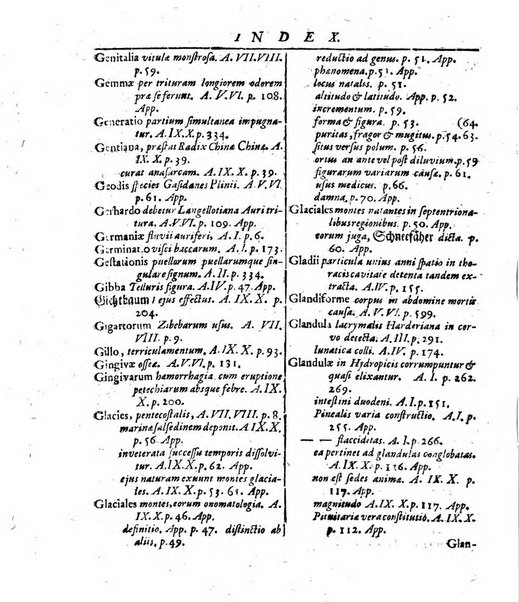 INDEX.
Genitalia vitulæ monstrosa. A. VII.VIII.
p. 59.
Gemmæ per trituram longiorem odorem
præ se ferunt. A. V.VI. p. 108.
App.
Generatio partium simultanea impugna-
tur. A. IX. X. p. 334.
Gentiana, præstat Radix China Chinæ A.
IX. X. p. 39.
curat anasarcam. A. IX. X. p. 39.
Geodis species Gasidanes Plinii. A. V.VI
p. 61. App.
Gerhardo debetur Langellotiana Auri tri-
tura. A. V. VI. p. 109. App.
Germaniæ fluvii auriferi. A. I. p. 6.
Germinatio visci baccarum. A. I. p. 173.
Gestationis puellum puellarumque sin-
gulare signum. A. II. p. 334.
Gibba Telluris figura. A. IV. p. 47. App.
Gichtbaum / ejus effectus. A. IX. X. p.
204.
Gigartorum Zibebarum usus. A. VII.
VIII. p. 9.
Gillo, terriculamentum. A. IX. X. p. 93.
Gingivæ ossea. A. V. VI. p. 131.
Gingivarum hæmorrhagia cum eruptione
petechiarum absque febre. A. IX.
X. p. 200.
Glacies, pentecostalis, A. VII. VIII. p. 8.
marinæ falsedinem deponit. A. IX. X.
p. 56. App.
inveterata successu temporis dissolvi-
tur. A. IX. X. p. 62. App.
ejus naturam exuunt montes glacia-
les. A. IX. X. p. 53. 61. App.
Glaciales montes, eorum onomatologia. A.
IX. X. p. 46. App.
definitio. App. p. 47. distinctio ab
aliis, p. 49.
reductio ad genus. p. 51. App.
phænomena. p. 51. App.
locus natalis. p. 51. App.
altitudo & latitudo. App. p. 52.
incrementum. p. 59.
forma & figura. p. 53. (64.
puritas, fragor & mugitus. p. 54. 63.
situs versus polum. p. 56.
ortus an ante vel post diluvium. p. 59
figurarum variarum causa. p. 61.
usus medicus. p. 66.
damna. p. 67.
Glaciales montes natantes in septentriona-
libus regionibus. p. 50. App.
eorum juga, Schneefüher dicta. p.
60. App.
Gladii particula unius anni spatio in tho-
racis cavitate detenta tandem ex-
tracta. A. IV. p. 155.
Glandiforme corpus in abdomine mortis
causa. A. V. VI. p. 599.
Glandula lacrymalis Harderiana in cer-
vo detecta. A. III. p. 291.
lunatica colli. A. IV. p. 174.
Glandulæ in Hydropicis corrumpuntur &
quasi elixantur. A. I. p. 262.
269.
intestini duodeni. A. I. p. 151.
Pinealis varia constructio. A. I. p.
255.
— — flacciditas. A. I. p. 266.
ea pertinet ad glandulas conglobatas.
A. IX. X. p. 116. App.
non est sedes animæ. A. IX. X. p.
117. App.
magnitudo A. IX. X. p. 117. App.
Pituitariæ vera constitutio. A. IX. X.
p. 112. App.
Glan-